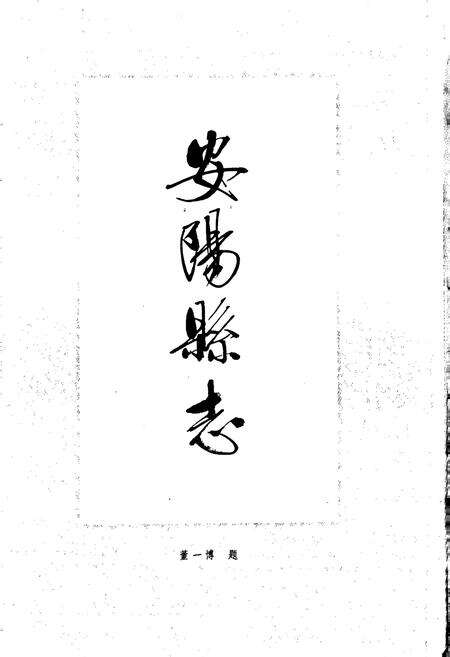 安陽縣志
董一博 题